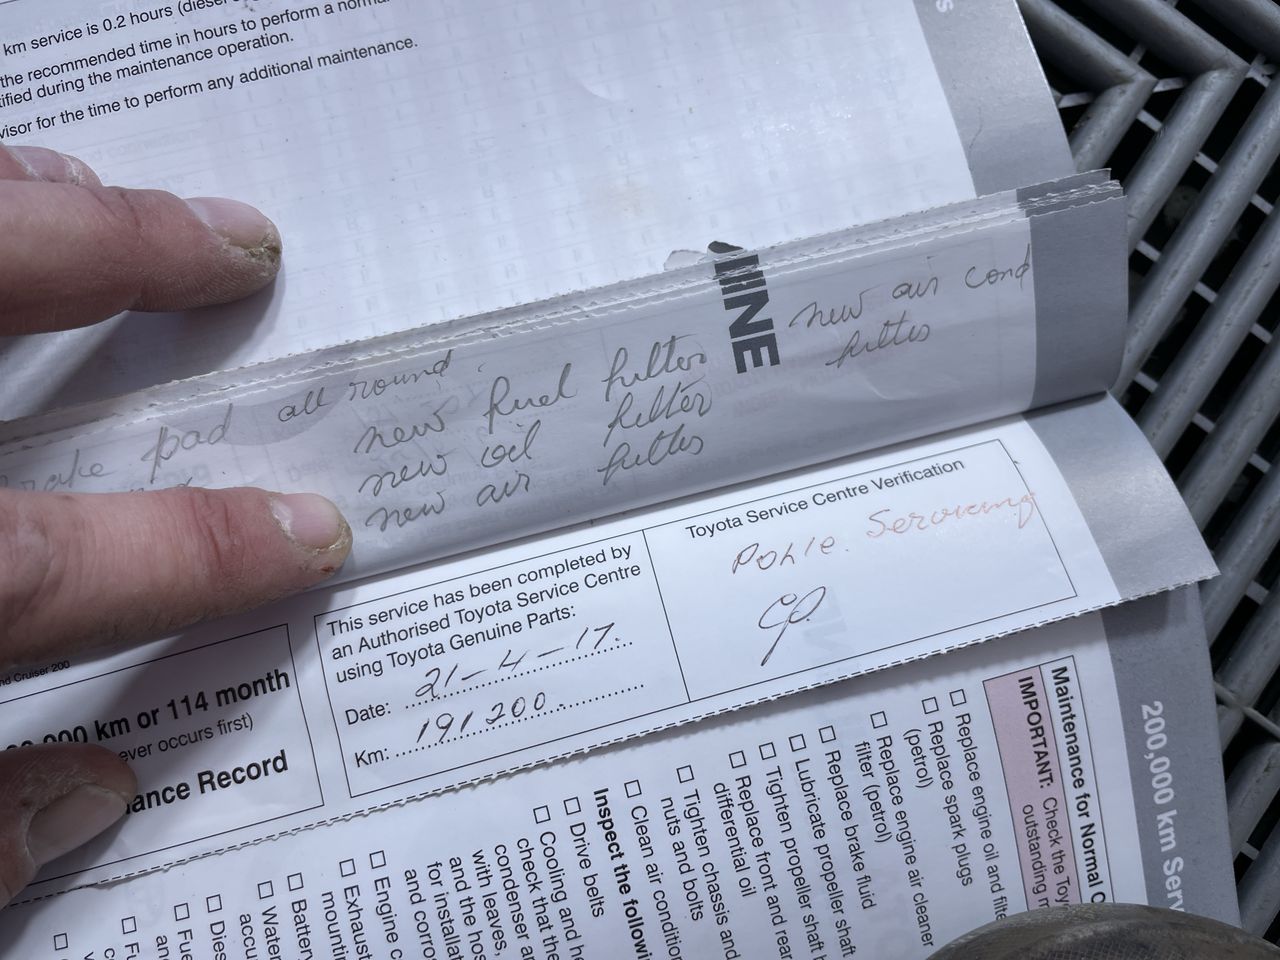 km service is 0.2 hours (diesel
the recommended time in hours to perform a norma
tified during the maintenance operation.
visor for the time to perform any additional maintenance.
rake pad all round.
new fuel filter
new oil filter
new air filter
INE
new air cond
filter
nd Cruiser 200
000 km or 114 month
ever occurs first)
ance Record
This service has been completed by
an Authorised Toyota Service Centre
using Toyota Genuine Parts:
Date: 21-4-17.
Km: 191200.
Toyota Service Centre Verification
Pohle. Servicing
200,000 km Serv
Maintenance for Normal C
IMPORTANT: Check the Toy
outstanding m
Replace engine oil and filte
Replace spark plugs
(petrol)
Replace engine air cleaner
filter (petrol)
Replace brake fluid
Lubricate propeller shaft
Tighten propeller shaft b
Replace front and rear
differential oil
Tighten chassis and
nuts and bolts
Clean air condition
Inspect the followi
Drive belts
Cooling and he
check that the
condenser a
with leaves,
and the hos
for installat
and corro
Engine c
Exhaust
mounti
Battery
Water
accu
Dies
Fue
and
Fu